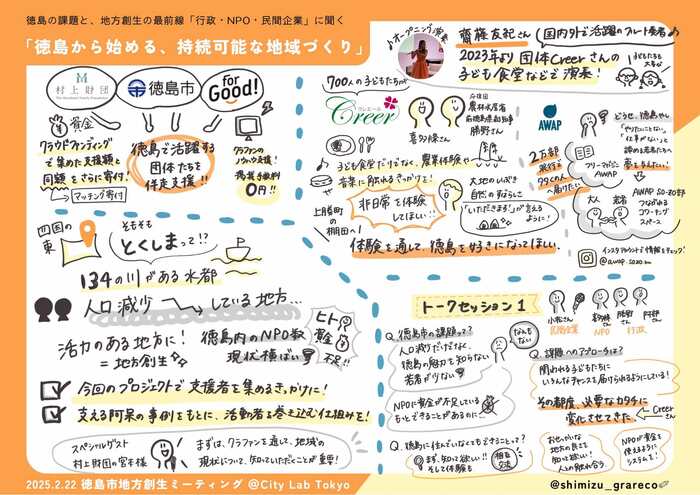 徳島の課題と、地方創生の最前線「行政・NPO・民間企業」に聞く
「徳島から始める、持続可能な地域づくり」
村上財団
徳島市
for Good!
資金
クラウドファンディング
で集めた支援額と
同額をさらに寄付!
マッチング寄付
徳島で活躍する
団体たちを
伴走支援!!
クラファンの
ノウハウ支援!
掲載手数料
0円!!
四国の
東
そもそも
とくしまって!?
134の川がある水都
人口減少
している地方…
活力のある地方に!
=地方創生
徳島県内のNPO数
現状横ばい
ヒト
資金
不足!!
今回のプロジェクトで支援者を集めるきっかけに!
支える阿呆の事例をもとに、活動者を巻き込む仕組みを!
スペシャルゲスト
村上財団の宮本様
まずは、クラファンを通して、地域の
現状について、知っていただくことが重要!
2025.2.22 徳島市地方創生ミーティング @City Lab Tokyo
オープニング演奏
齋藤友紀さん
国内外で活躍のフルート奏者
2023年より団体Creerさんの
子ども食堂などで演奏!
子どもたちも
大喜び
700人の子どもたちが
クレエール
Creer
喜多條さん
農林水産省
勝野さん
子ども食堂だけでなく、農業体験や
音楽に触れるきっかけを!
上勝町の
棚田へ!
非日常を体験
してほしい!!
大地のいぶき
自然のすばらしさ
「いただきます!」が言える
ように!
体験を通して、徳島を好きになってほしい。
AWAP
どうせ、徳島やし
「やりたいことない」
「仕事がない」と
諦める若者たちへ
夢を与えたい!
2万部
発行し
99%の人
へ届けたい
フリーマガジン
AWAP
大人
若者
AWAP SO-ZO部
つながれる
コワーキング
スペース
インスタアカウントで情報をチェック!
@awap.sozo
トークセッション1
小松さん
民間企業
喜多條さん
NPO
勝野さん
阿部さん
行政
Q. 徳島市の課題って?
人口減少だけでなく、
徳島の魅力を知らない
若者が少ない
なんも
ない
NPOに資金が不足している
もっとできることがあるのに…
Q. 課題へのアプローチは?
関われる子どもたちに
いろんなチャンスを届けられるようにしている!
その都度、必要なカタチに
変化させてきた。
Creer
さん
Q. 徳島に住んでいなくてもできることって?
まず、知って欲しい!!
そして体験も
相互
交流
おせっかいな
地方の良さを
知って欲しい!
人との触れ合う
NPOが資金を
使えるように
システムを!
@shimizu_grareco